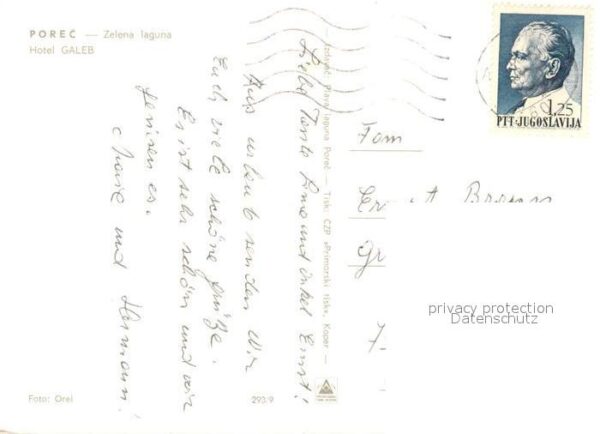 POREČ — Zelena laguna
Hotel GALEB
Liebe Tante Lina und Onkel Ernst!
Aus Urlaub senden Wir
Euch viele schöne Grüße.
Es ist sehr schön und wir
genießen es.
Marie und Hermann!
Izdavač: Plava laguna Poreč — Tisk: ČZP »Primorski tisk«, Koper —
1,25
PTT-JUGOSLAVIJA
Fam
privacy protection
Datenschutz
Foto: Orel
293/9